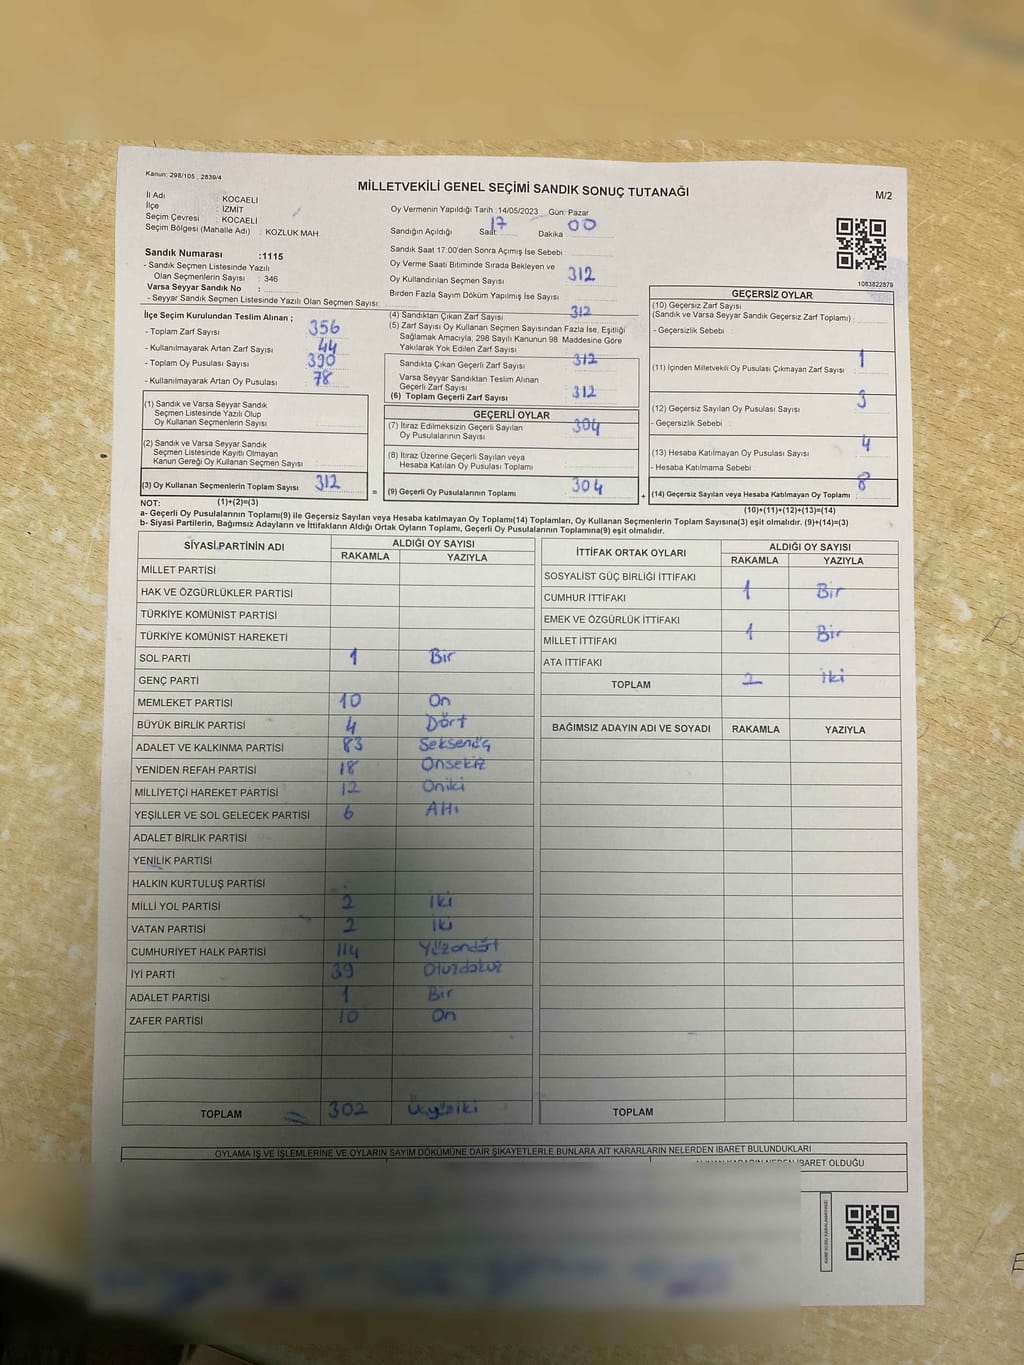 Kanun: 298/105 , 2839/4
MİLLETVEKİLİ GENEL SEÇİMİ SANDIK SONUÇ TUTANAĞI
M/2
İl Adı : KOCAELİ
İlçe : İZMİT
Seçim Çevresi : KOCAELİ
Seçim Bölgesi (Mahalle Adı) : KOZLUK MAH.
Oy Vermenin Yapıldığı Tarih :14/05/2023 Gün: Pazar
Sandığın Açıldığı Saat: 17 Dakika 00
Sandık Saat 17:00'den Sonra Açımış İse Sebebi :
Sandık Numarası :1115
- Sandık Seçmen Listesinde Yazılı
Olan Seçmenlerin Sayısı : 346
Varsa Seyyar Sandık No :
- Seyyar Sandık Seçmen Listesinde Yazılı Olan Seçmen Sayısı :
Oy Verme Saati Bitiminde Sırada Bekleyen ve
Oy Kullandırılan Seçmen Sayısı 312
Birden Fazla Sayım Döküm Yapılmış İse Sayısı
1083822879
İlçe Seçim Kurulundan Teslim Alınan ;
- Toplam Zarf Sayısı 356
- Kullanılmayarak Artan Zarf Sayısı 44
- Toplam Oy Pusulası Sayısı 390
- Kullanılmayarak Artan Oy Pusulası 78
(1) Sandık ve Varsa Seyyar Sandık
Seçmen Listesinde Yazılı Olup
Oy Kullanan Seçmenlerin Sayısı
(2) Sandık ve Varsa Seyyar Sandık
Seçmen Listesinde Kayıtlı Olmayan
Kanun Gereği Oy Kullanan Seçmen Sayısı
(3) Oy Kullanan Seçmenlerin Toplam Sayısı 312
(1)+(2)=(3)
(4) Sandıktan Çıkan Zarf Sayısı 312
(5) Zarf Sayısı Oy Kullanan Seçmen Sayısından Fazla İse, Eşitliği
Sağlamak Amacıyla, 298 Sayılı Kanunun 98. Maddesine Göre
Yakılarak Yok Edilen Zarf Sayısı
Sandıkta Çıkan Geçerli Zarf Sayısı 312
Varsa Seyyar Sandıktan Teslim Alınan
Geçerli Zarf Sayısı
(6) Toplam Geçerli Zarf Sayısı 312
GEÇERLİ OYLAR
(7) İtiraz Edilmeksizin Geçerli Sayılan
Oy Pusulalarının Sayısı 304
(8) İtiraz Üzerine Geçerli Sayılan veya
Hesaba Katılan Oy Pusulası Toplamı
= (9) Geçerli Oy Pusulalarının Toplamı 304
GEÇERSİZ OYLAR
(10) Geçersiz Zarf Sayısı
(Sandık ve Varsa Seyyar Sandık Geçersiz Zarf Toplamı) :
- Geçersizlik Sebebi :
(11) İçinden Milletvekili Oy Pusulası Çıkmayan Zarf Sayısı : 1
(12) Geçersiz Sayılan Oy Pusulası Sayısı 3
- Geçersizlik Sebebi :
(13) Hesaba Katılmayan Oy Pusulası Sayısı 4
- Hesaba Katılmama Sebebi :
+ (14) Geçersiz Sayılan veya Hesaba Katılmayan Oy Toplamı : 8
(10)+(11)+(12)+(13)=(14)
NOT:
a- Geçerli Oy Pusulalarının Toplamı(9) ile Geçersiz Sayılan veya Hesaba katılmayan Oy Toplamı(14) Toplamları, Oy Kullanan Seçmenlerin Toplam Sayısına(3) eşit olmalıdır. (9)+(14)=(3)
b- Siyasi Partilerin, Bağımsız Adayların ve İttifakların Aldığı Ortak Oyların Toplamı, Geçerli Oy Pusulalarının Toplamına(9) eşit olmalıdır.
SİYASİ PARTİNİN ADI ALDIĞI OY SAYISI
RAKAMLA YAZIYLA
MİLLET PARTİSİ
HAK VE ÖZGÜRLÜKLER PARTİSİ
TÜRKİYE KOMÜNİST PARTİSİ
TÜRKİYE KOMÜNİST HAREKETİ
SOL PARTİ 1 Bir
GENÇ PARTİ
MEMLEKET PARTİSİ 10 On
BÜYÜK BİRLİK PARTİSİ 4 Dört
ADALET VE KALKINMA PARTİSİ 83 Seksenüç
YENİDEN REFAH PARTİSİ 18 Onsekiz
MİLLİYETÇİ HAREKET PARTİSİ 12 Oniki
YEŞİLLER VE SOL GELECEK PARTİSİ 6 Altı
ADALET BİRLİK PARTİSİ
YENİLİK PARTİSİ
HALKIN KURTULUŞ PARTİSİ
MİLLİ YOL PARTİSİ 2 İki
VATAN PARTİSİ 2 İki
CUMHURİYET HALK PARTİSİ 114 Yüzondört
İYİ PARTİ 39 Otuzdokuz
ADALET PARTİSİ 1 Bir
ZAFER PARTİSİ 10 On
TOPLAM 302 Üçyüziki
İTTİFAK ORTAK OYLARI ALDIĞI OY SAYISI
RAKAMLA YAZIYLA
SOSYALİST GÜÇ BİRLİĞİ İTTİFAKI
CUMHUR İTTİFAKI 1 Bir
EMEK VE ÖZGÜRLÜK İTTİFAKI
MİLLET İTTİFAKI 1 Bir
ATA İTTİFAKI
TOPLAM 2 İki
BAĞIMSIZ ADAYIN ADI VE SOYADI RAKAMLA YAZIYLA
TOPLAM
OYLAMA İŞ VE İŞLEMLERİNE VE OYLARIN SAYIM DÖKÜMÜNE DAİR ŞİKAYETLERLE BUNLARA AİT KARARLARIN NELERDEN İBARET BULUNDUKLARI
İBARET OLDUĞU